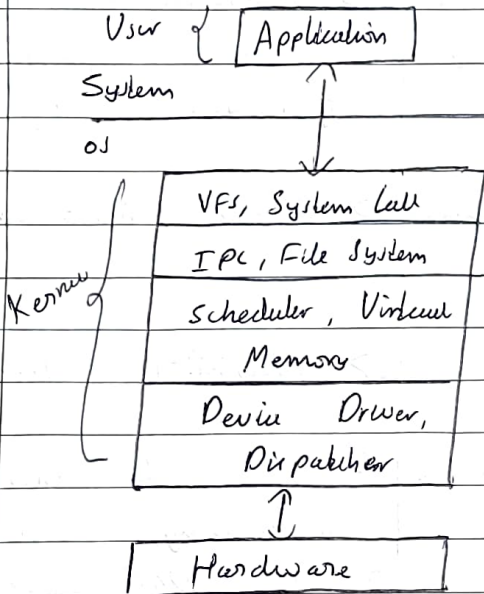 User { Application
System
OS
VFS, System Call
IPC, File System
Kernel
Scheduler, Virtual
Memory
Device Driver,
Dispatcher
Hardware